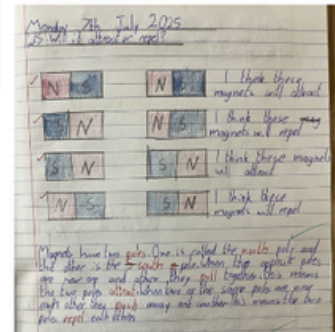 Monday 7th July 2025
LS: Will it attract or repel?
N S N S I think these
magnets will attract
S N N S I think these
magnets will repel
S N S N I think these magnets
will attract
N S S N I think these
magnets will repel
Magnets have two poles. One is called the north pole and
the other is the south pole. When two opposite poles
are near one and other they pull together this means
the two poles attract. When two of the same poles are near
each other they push away and another this means the two
poles repel each other.